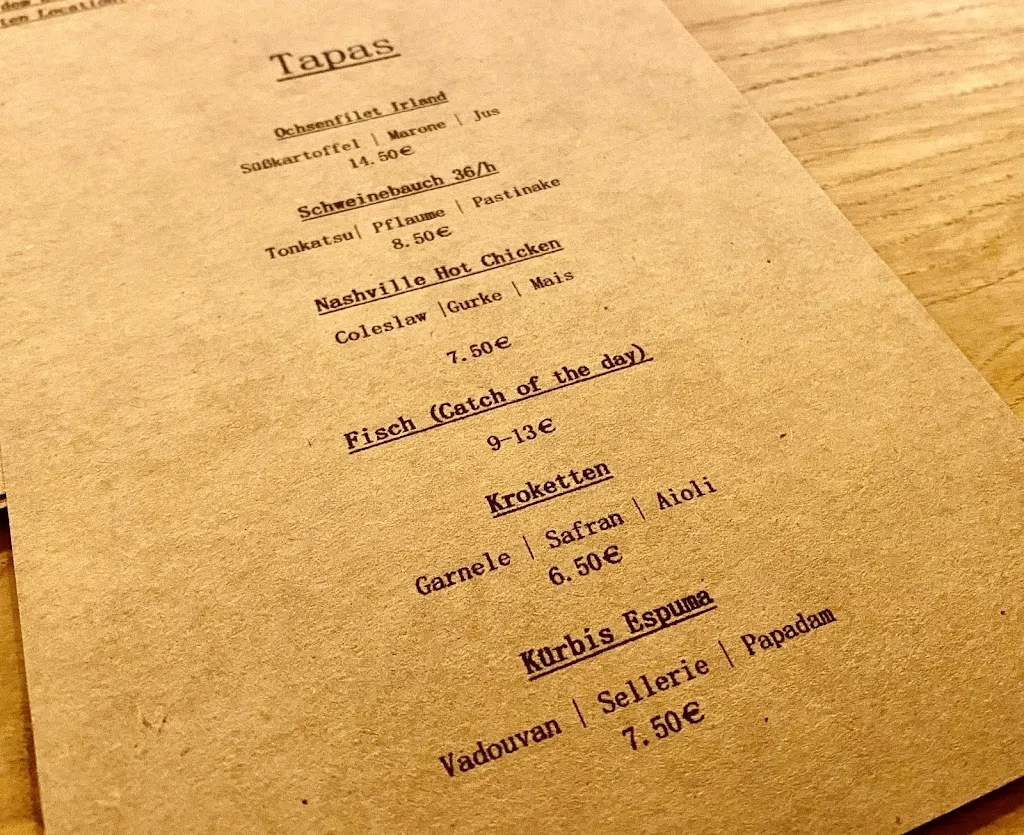 dem
ten Location.
Tapas
Ochsenfilet Irland
Süßkartoffel | Marone | Jus
14.50€
Schweinebauch 36/h
Tonkatsu| Pflaume | Pastinake
8.50€
Nashville Hot Chicken
Coleslaw |Gurke | Mais
7.50€
Fisch (Catch of the day)
9-13€
Kroketten
Garnele | Safran | Aioli
6.50€
Kürbis Espuma
Vadouvan | Sellerie | Papadam
7.50€